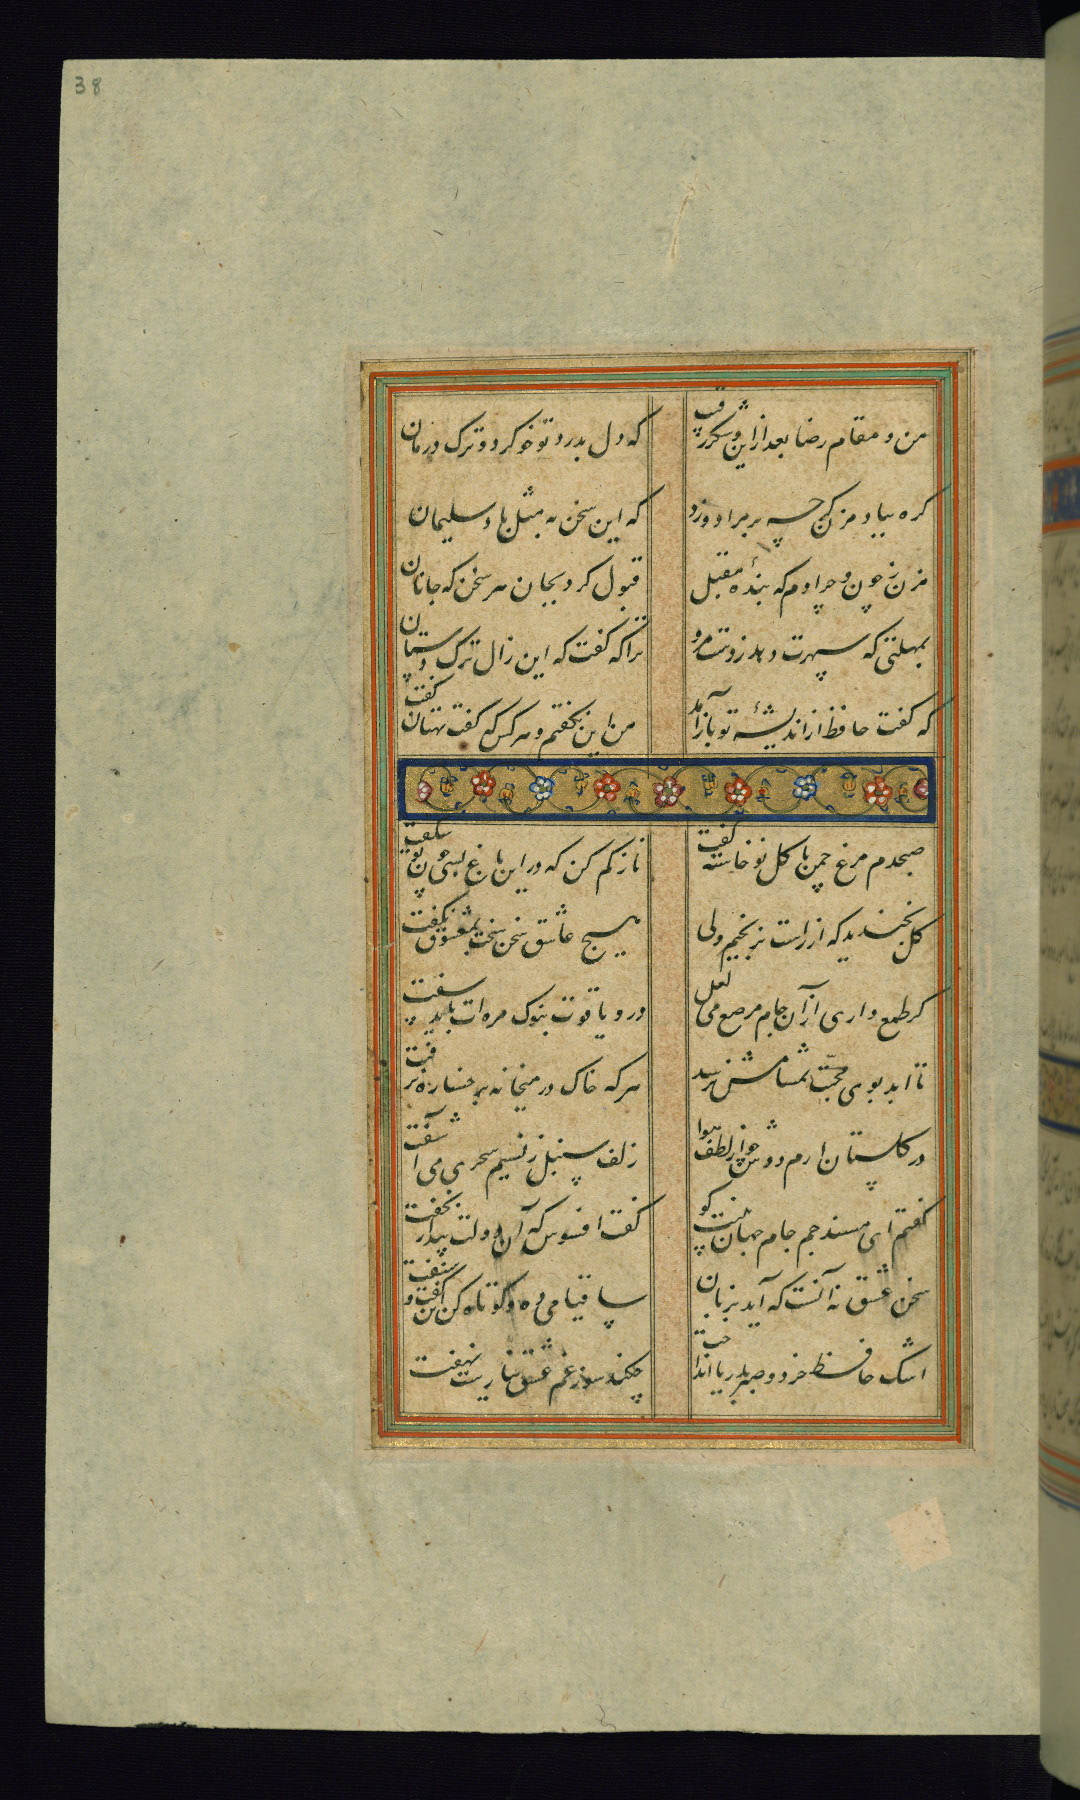 38
من و مقام رضا بعد ازین و شکر رقیب
که دل بدرد تو خو کرد و ترک درمان
کره بباد مزن کر چه بر مراد وزد
که این سخن به مثل باد سلیمان
مزن ز چون و چرا دم که بندهٔ مقبل
قبول کرد بجان هر سخن که جانان
بمهلتی که سپهرت دهد ز ره مرو
ترا که کفت که این زال ترک دستان
که کفت حافظ از اندیشهٔ تو باز آمد
من این نکفتم و هر کس که کفت بهتان کفت
صبحدم مرغ چمن با کل نو خاسته کفت
ناز کم کن که درین باغ بسی چون تو شکفت
کل بخندید که از راست نرنجیم ولی
هیچ عاشق سخن سخت بمعشوق نکفت
کر طمع داری از آن جام مرصع می لعل
در و یاقوت بنوک مژه ات باید سفت
تا ابد بوی محبت بمشامش نرسد
هر که خاک در میخانه برخساره نرفت
در کلستان ارم دوش چو از لطف هوا
زلف سنبل ز نسیم سحری می آشفت
کفتم ای مسند جم جام جهان بینت کو
کفت افسوس که آن دولت بیدار بخفت
سخن عشق نه آنست که آید بزبان
ساقیا می ده و کوتاه کن این کفت و شنفت
اشک حافظ خرد و صبر بدریا انداخت
چکند سوز غم عشق نیارست نهفت